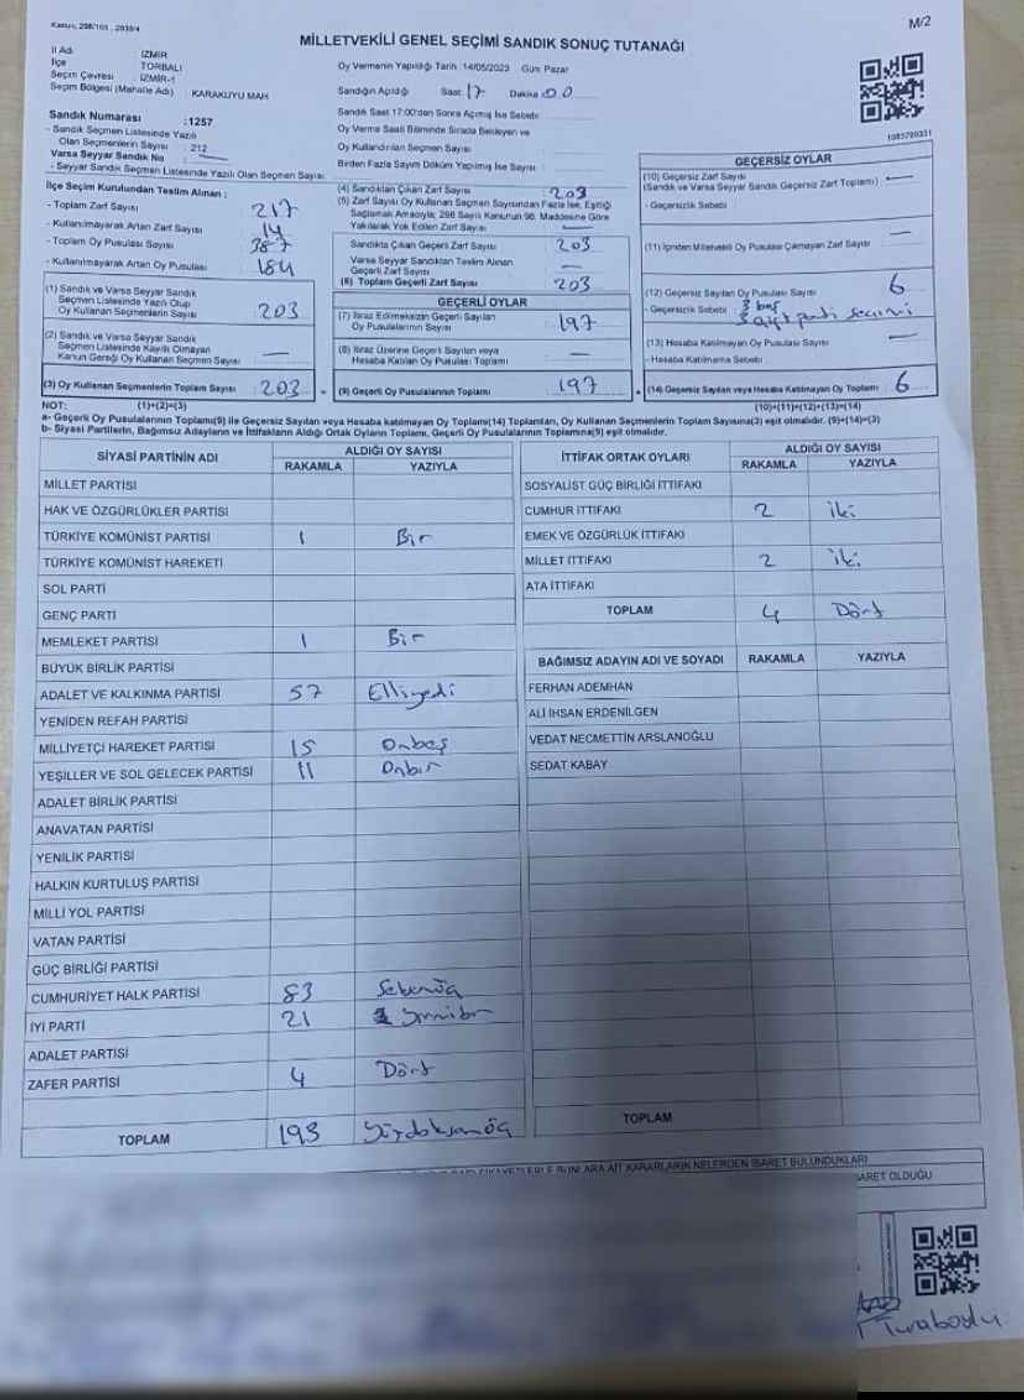 M/2
MİLLETVEKİLİ GENEL SEÇİMİ SANDIK SONUÇ TUTANAĞI
İl Adı İZMİR
İlçe TORBALI
Seçim Çevresi İZMİR-1
Seçim Bölgesi (Mahalle Adı) KARAKUYU MAH
Sandık Numarası :1257
- Sandık Seçmen Listesinde Yazılı
Olan Seçmenlerin Sayısı : 212
Varsa Seyyar Sandık No
- Seyyar Sandık Seçmen Listesinde Yazılı Olan Seçmen Sayısı:
Oy Vermenin Yapıldığı Tarih 14/05/2023 Gün: Pazar
Sandığın Açıldığı Saat 17 Dakika 00
Sandık Saat 17:00'den Sonra Açılmış İse Sebebi
Oy Verme Saati Bitiminde Sırada Bekleyen ve
Oy Kullandırılan Seçmen Sayısı
Birden Fazla Sayım Döküm Yapılmış İse Sayısı
İlçe Seçim Kurulundan Teslim Alınan :
- Toplam Zarf Sayısı 217
- Kullanılmayarak Artan Zarf Sayısı 14
- Toplam Oy Pusulası Sayısı 387
- Kullanılmayarak Artan Oy Pusulası 184
(1) Sandık ve Varsa Seyyar Sandık
Seçmen Listesinde Yazılı Olup
Oy Kullanan Seçmenlerin Sayısı 203
(2) Sandık ve Varsa Seyyar Sandık
Seçmen Listesinde Kayıtlı Olmayan
Kanun Gereği Oy Kullanan Seçmen Sayısı —
(3) Oy Kullanan Seçmenlerin Toplam Sayısı 203
(4) Sandıktan Çıkan Zarf Sayısı : 203
(5) Zarf Sayısı Oy Kullanan Seçmen Sayısından Fazla İse, Eşitliği
Sağlamak Amacıyla; 298 Sayılı Kanunun 98. Maddesine Göre
Yakılarak Yok Edilen Zarf Sayısı —
Sandıkta Çıkan Geçerli Zarf Sayısı 203
Varsa Seyyar Sandıktan Teslim Alınan
Geçerli Zarf Sayısı —
(6) Toplam Geçerli Zarf Sayısı 203
GEÇERLİ OYLAR
(7) İtiraz Edilmeksizin Geçerli Sayılan
Oy Pusulalarının Sayısı 197
(8) İtiraz Üzerine Geçerli Sayılan veya
Hesaba Katılan Oy Pusulası Toplamı —
(9) Geçerli Oy Pusulalarının Toplamı 197
GEÇERSİZ OYLAR
(10) Geçersiz Zarf Sayısı
(Sandık ve Varsa Seyyar Sandık Geçersiz Zarf Toplamı) —
- Geçersizlik Sebebi
(11) İçinden Milletvekili Oy Pusulası Çıkmayan Zarf Sayısı —
(12) Geçersiz Sayılan Oy Pusulası Sayısı 6
- Geçersizlik Sebebi 3 boş
3 ayrı parti seçimi
(13) Hesaba Katılmayan Oy Pusulası Sayısı —
- Hesaba Katılmama Sebebi
(14) Geçersiz Sayılan veya Hesaba Katılmayan Oy Toplamı 6
NOT: (1)+(2)=(3) (10)+(11)+(12)+(13)=(14)
a- Geçerli Oy Pusulalarının Toplamı(9) ile Geçersiz Sayılan veya Hesaba katılmayan Oy Toplamı(14) Toplamları, Oy Kullanan Seçmenlerin Toplam Sayısına(3) eşit olmalıdır. (9)+(14)=(3)
b- Siyasi Partilerin, Bağımsız Adayların ve İttifakların Aldığı Ortak Oyların Toplamı, Geçerli Oy Pusulalarının Toplamına(9) eşit olmalıdır.
SİYASİ PARTİNİN ADI ALDIĞI OY SAYISI
RAKAMLA YAZIYLA
MİLLET PARTİSİ
HAK VE ÖZGÜRLÜKLER PARTİSİ
TÜRKİYE KOMÜNİST PARTİSİ 1 Bir
TÜRKİYE KOMÜNİST HAREKETİ
SOL PARTİ
GENÇ PARTİ
MEMLEKET PARTİSİ 1 Bir
BÜYÜK BİRLİK PARTİSİ
ADALET VE KALKINMA PARTİSİ 57 Elliyedi
YENİDEN REFAH PARTİSİ
MİLLİYETÇİ HAREKET PARTİSİ 15 Onbeş
YEŞİLLER VE SOL GELECEK PARTİSİ 11 Onbir
ADALET BİRLİK PARTİSİ
ANAVATAN PARTİSİ
YENİLİK PARTİSİ
HALKIN KURTULUŞ PARTİSİ
MİLLİ YOL PARTİSİ
VATAN PARTİSİ
GÜÇ BİRLİĞİ PARTİSİ
CUMHURİYET HALK PARTİSİ 83 Seksenüç
İYİ PARTİ 21 Yirmibir
ADALET PARTİSİ
ZAFER PARTİSİ 4 Dört
TOPLAM 193 Yüzdoksanüç
İTTİFAK ORTAK OYLARI ALDIĞI OY SAYISI
RAKAMLA YAZIYLA
SOSYALİST GÜÇ BİRLİĞİ İTTİFAKI
CUMHUR İTTİFAKI 2 iki
EMEK VE ÖZGÜRLÜK İTTİFAKI
MİLLET İTTİFAKI 2 iki
ATA İTTİFAKI
TOPLAM 4 Dört
BAĞIMSIZ ADAYIN ADI VE SOYADI RAKAMLA YAZIYLA
FERHAN ADEMHAN
ALİ İHSAN ERDENİLGEN
VEDAT NECMETTİN ARSLANOĞLU
SEDAT KABAY
TOPLAM
KARARLARIN NELERDEN İBARET BULUNDUKLARI
İBARET OLDUĞU